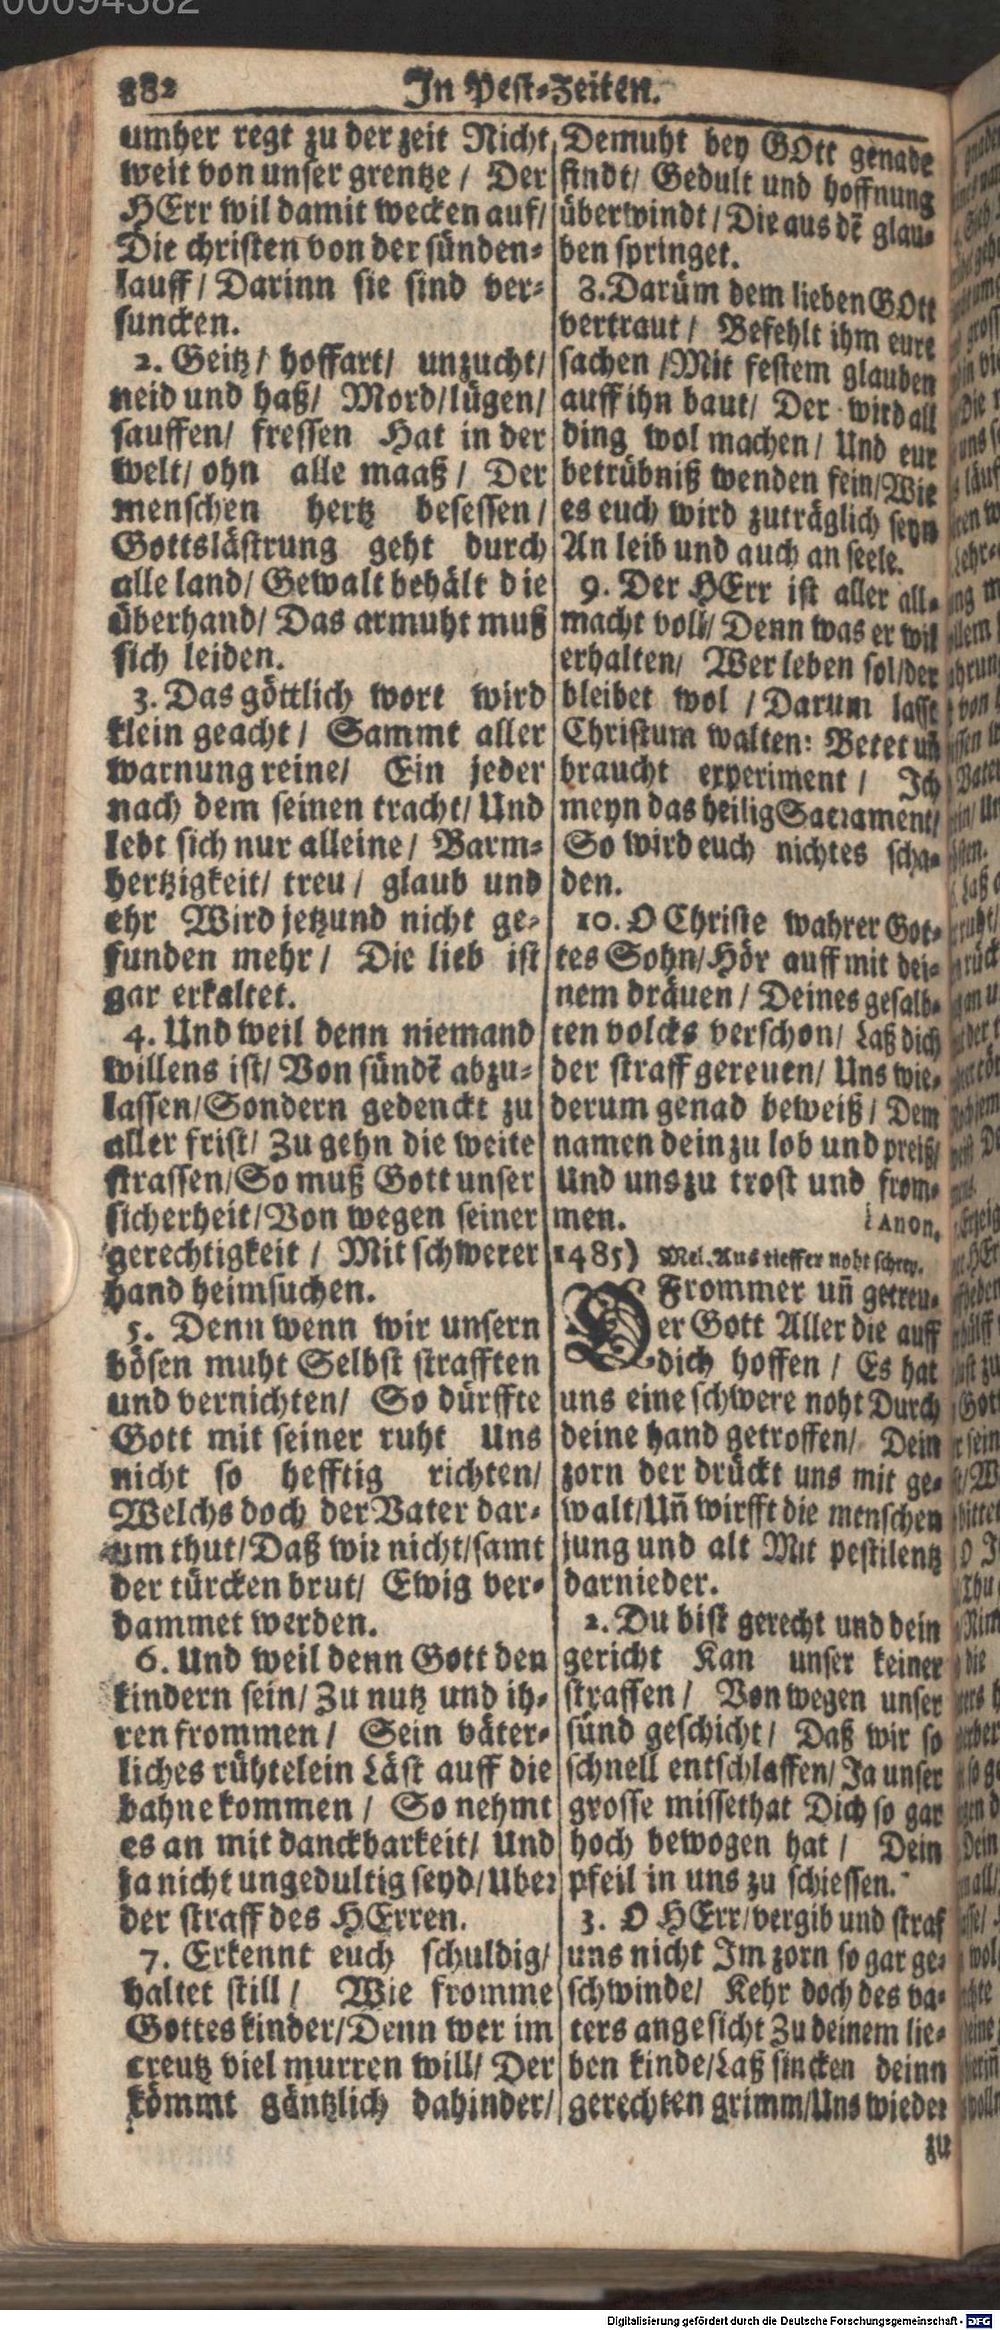 00094382
882 In Pest-Zeiten.
umher regt zu der zeit Nicht
weit von unser grentze / Der
HErr wil damit wecken auf/
Die christen von der sünden-
lauff / Darinn sie sind ver-
suncken.
2. Geitz / hoffart/ unzucht/
neid und haß/ Mord/lügen/
sauffen/ fressen Hat in der
welt/ ohn alle maaß / Der
menschen hertz besessen /
Gottslästrung geht durch
alle land/ Gewalt behält die
überhand/ Das armuht muß
sich leiden.
3. Das göttlich wort wird
klein geacht / Sammt aller
warnung reine/ Ein jeder
nach dem seinen tracht/ Und
lebt sich nur alleine / Barm-
hertzigkeit/ treu / glaub und
ehr Wird jetzund nicht ge-
funden mehr / Die lieb ist
gar erkaltet.
4. Und weil denn niemand
willens ist/ Von sündẽ abzu-
lassen/Sondern gedenckt zu
aller frist/ Zu gehn die weite
strassen/So muß Gott unser
sicherheit/Von wegen seiner
gerechtigkeit / Mit schwerer
hand heimsuchen.
5. Denn wenn wir unsern
bösen muht Selbst strafften
und vernichten/ So dürffte
Gott mit seiner ruht Uns
nicht so hefftig richten/
Welchs doch der Vater dar-
um thut/Daß wir nicht/samt
der türcken brut/ Ewig ver-
dammet werden.
6. Und weil denn Gott den
kindern sein/ Zu nutz und ih-
ren frommen / Sein väter-
liches rühtelein Läst auff die
bahne kommen / So nehmt
es an mit danckbarkeit/ Und
ja nicht ungedultig seyd/Uber
der straff des HErren.
7. Erkennt euch schuldig/
haltet still / Wie fromme
Gottes kinder/Denn wer im
creutz viel murren will/ Der
kömmt gäntzlich dahinder/
Demuht bey GOtt genade
findt/ Gedult und hoffnung
überwindt / Die aus dẽ glau-
ben springet.
8. Darüm dem lieben GOtt
vertraut / Befehlt ihm eure
sachen /Mit festem glauben
auff ihn baut/ Der wird all
ding wol machen/ Und eur
betrübniß wenden fein/Wie
es euch wird zuträglich seyn
An leib und auch an seele.
9. Der HErr ist aller all-
macht voll/ Denn was er wil
erhalten/ Wer leben sol/der
bleibet wol / Darum lasst
Christum walten: Betet uñ
braucht experiment / Ich
meyn das heilig Sacrament/
So wird euch nichtes scha-
den.
10. O Christe wahrer Got-
tes Sohn/Hör auff mit dei-
nem dräuen / Deines gesalb-
ten volcks verschon/ Laß dich
der straff gereuen/ Uns wie-
derum genad beweiß / Dem
namen dein zu lob und preiß/
Und uns zu trost und from-
men. Anon.
1485) Mel. Aus tieffer noht schrey.
O Frommer uñ getreu-
er Gott Aller die auff
dich hoffen / Es hat
uns eine schwere noht Durch
deine hand getroffen/ Dein
zorn der drückt uns mit ge-
walt/Uñ wirfft die menschen
jung und alt Mit pestilentz
darnieder.
2. Du bist gerecht und dein
gericht Kan unser keiner
straffen / Von wegen unser
sünd geschicht / Daß wir so
schnell entschlaffen/ Ja unser
grosse missethat Dich so gar
hoch bewogen hat / Dein
pfeil in uns zu schiessen.
3. O HErr/vergib und straf
uns nicht Im zorn so gar ge-
schwinde/ Kehr doch des va-
ters angesicht Zu deinem lie-
ben kinde/Laß sincken deinn
gerechten grimm/Uns wieder
zu
Digitalisierung gefördert durch die Deutsche Forschungsgemeinschaft - DFG